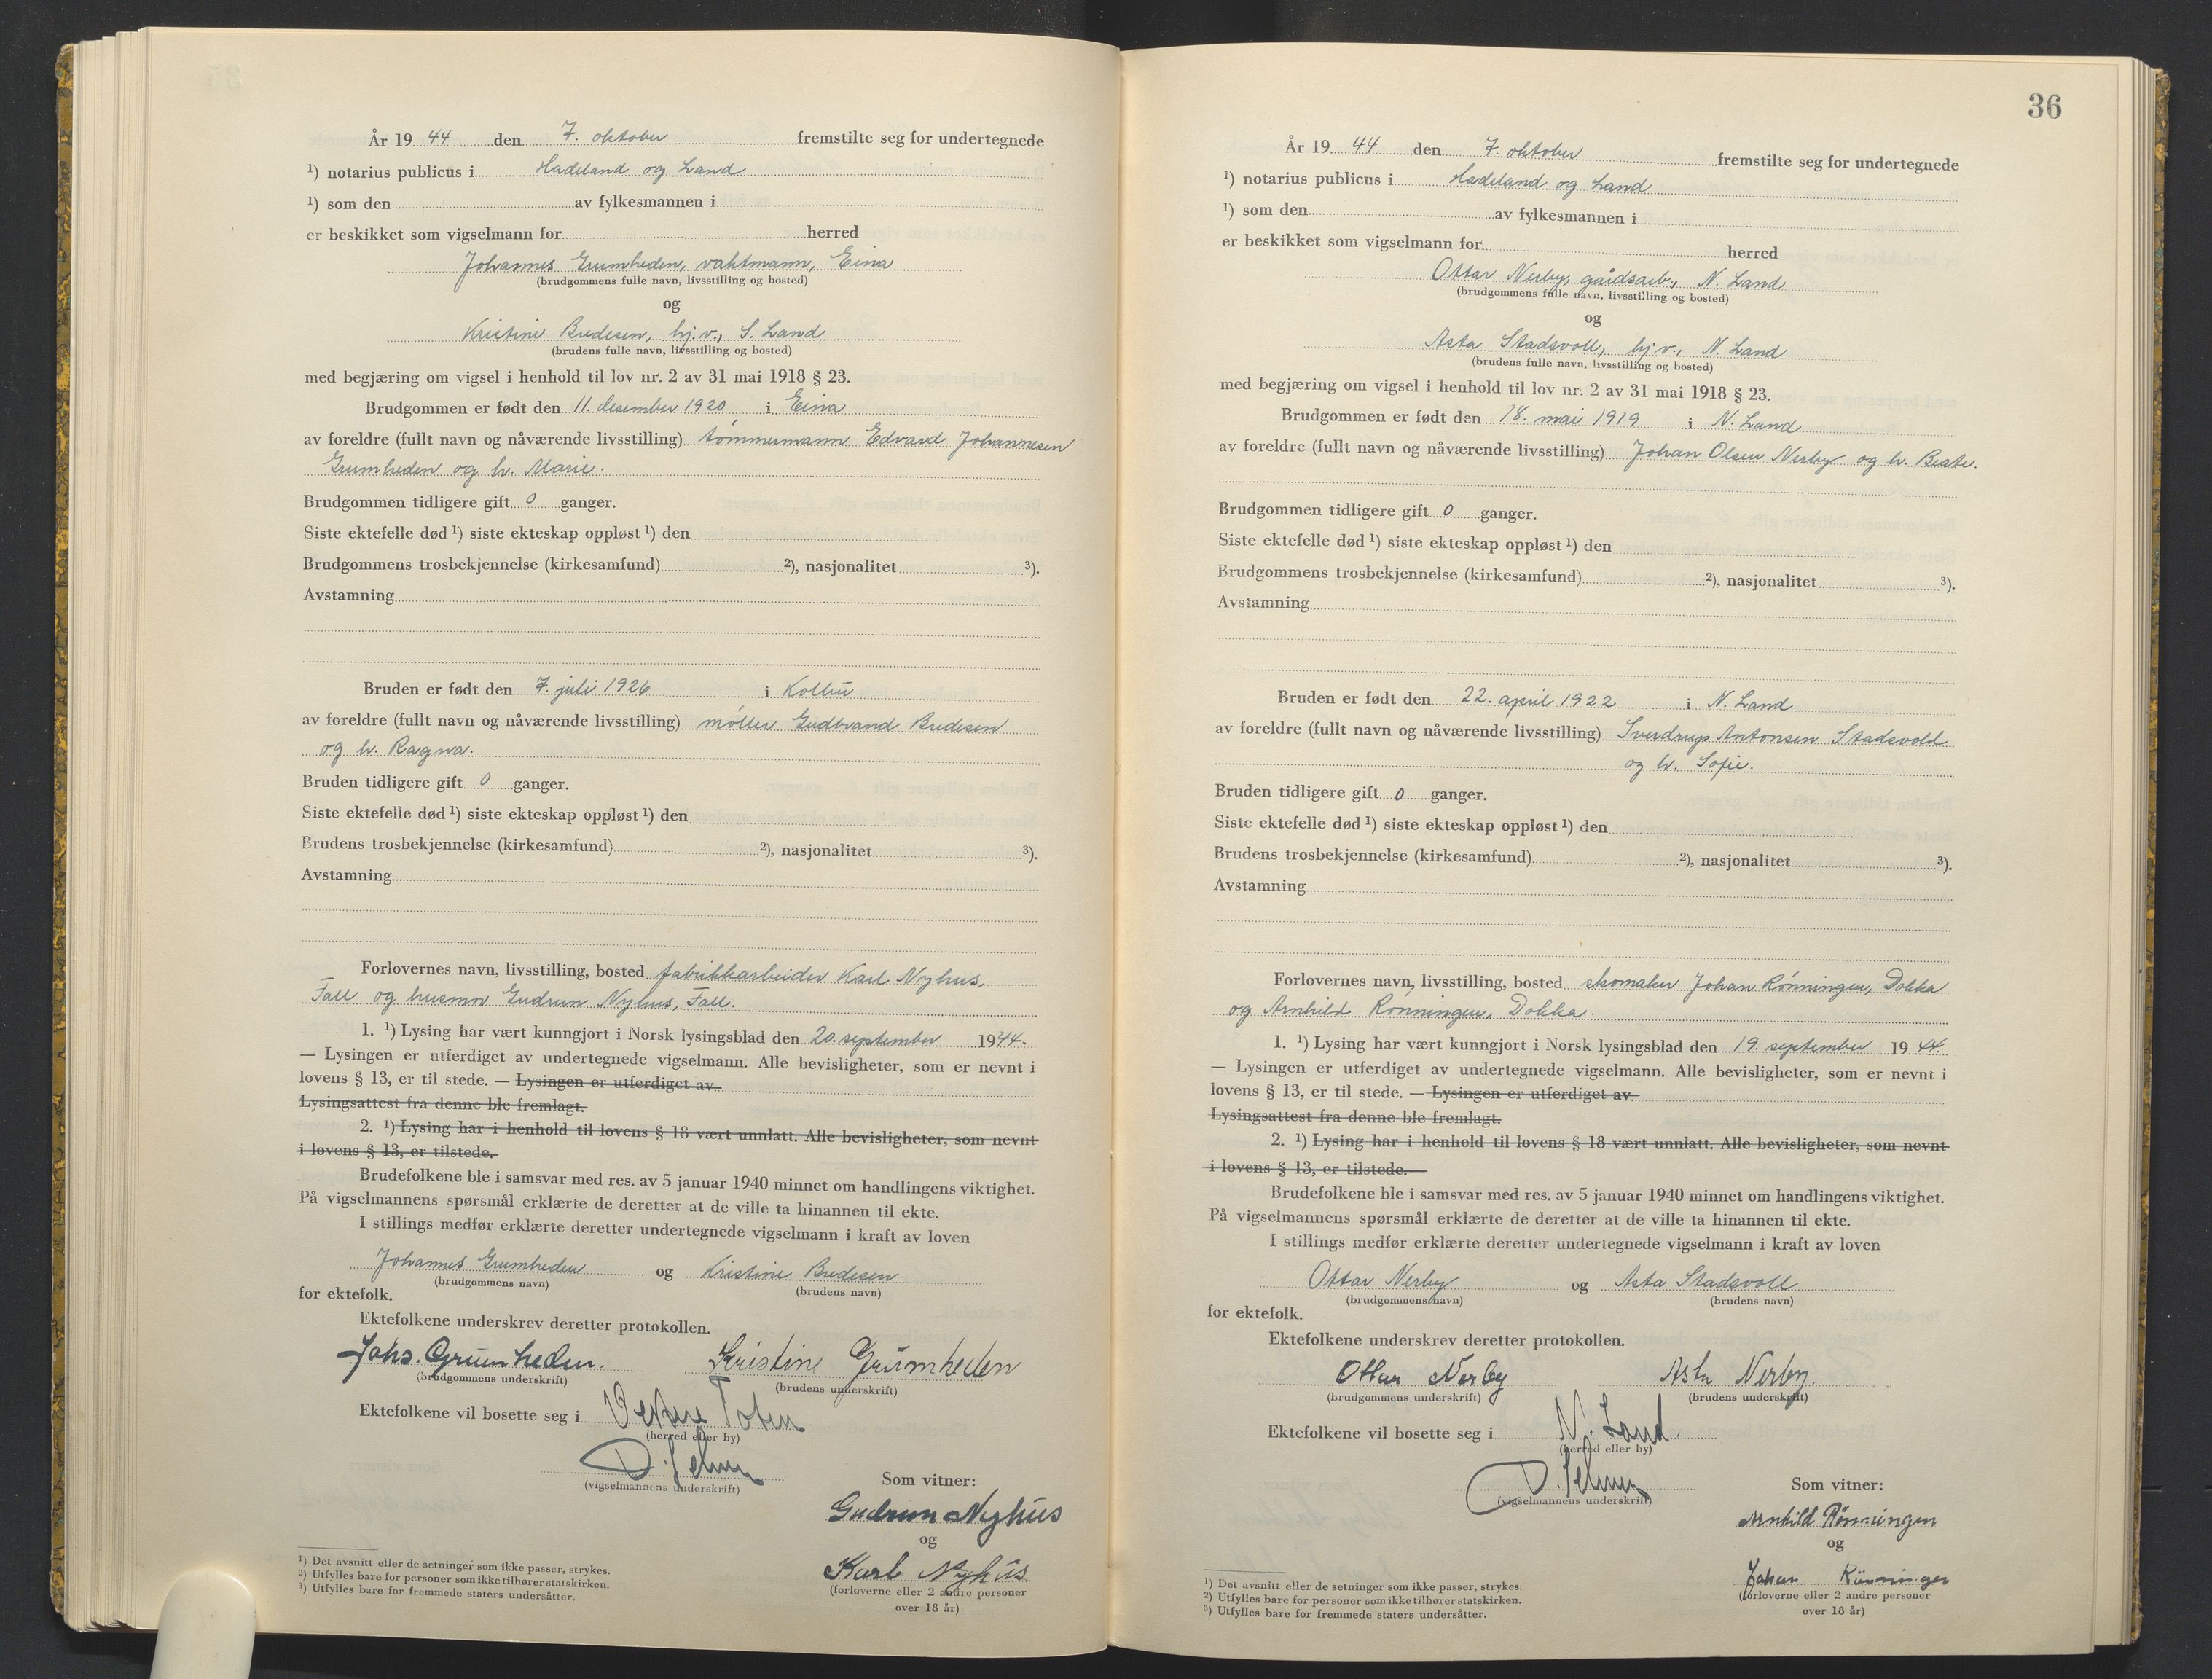 År 19 44 den 7. oktober fremstilte seg for undertegnede
¹) notarius publicus i Hadeland og Land
¹) som den av fylkesmannen i
er beskikket som vigselmann for herred
Johannes Grumheden, vaktmann, Eina
(brudgommens fulle navn, livsstilling og bosted)
og
Kristine Bredesen, hj.v., S. Land
(brudens fulle navn, livsstilling og bosted)
med begjæring om vigsel i henhold til lov nr. 2 av 31 mai 1918 § 23.
Brudgommen er født den 11. desember 1920 i Eina
av foreldre (fullt navn og nåværende livsstilling) tömmermann Edvard Johannesen
Grumheden og h. Marie.
Brudgommen tidligere gift 0 ganger.
Siste ektefelle død ¹) siste ekteskap oppløst ¹) den
Brudgommens trosbekjennelse (kirkesamfund) ²), nasjonalitet ³).
Avstamning
Bruden er født den 7. juli 1926 i Kolbu
av foreldre (fullt navn og nåværende livsstilling) möller Gudbrand Bredesen
og h. Ragna.
Bruden tidligere gift 0 ganger.
Siste ektefelle død ¹) siste ekteskap oppløst ¹) den
Brudens trosbekjennelse (kirkesamfund) ²), nasjonalitet ³).
Avstamning
Forlovernes navn, livsstilling, bosted fabrikkarbeider Karl Nyhus,
Fall og husmor Gudrun Nyhus, Fall.
1. ¹) Lysing har vært kunngjort i Norsk lysingsblad den 20. september 1944.
— Lysingen er utferdiget av undertegnede vigselmann. Alle bevisligheter, som er nevnt i
lovens § 13, er til stede. — Lysingen er utferdiget av
Lysingsattest fra denne ble fremlagt.
2. ¹) Lysing har i henhold til lovens § 18 vært unnlatt. Alle bevisligheter, som nevnt
i lovens § 13, er tilstede.
Brudefolkene ble i samsvar med res. av 5 januar 1940 minnet om handlingens viktighet.
På vigselmannens spørsmål erklærte de deretter at de ville ta hinannen til ekte.
I stillings medfør erklærte deretter undertegnede vigselmann i kraft av loven
Johannes Grumheden og Kristine Bredesen
(brudgommens navn) (brudens navn)
for ektefolk.
Ektefolkene underskrev deretter protokollen.
Johs. Grumheden. Kristine Grumheden
(brudgommens underskrift) (brudens underskrift)
Ektefolkene vil bosette seg i Vestre Toten
(herred eller by)
(vigselmannens underskrift)
Som vitner:
Gudrun Nyhus
og
Karl Nyhus
(forloverne eller 2 andre personer
over 18 år)
¹) Det avsnitt eller de setninger som ikke passer, strykes.
²) Utfylles bare for personer som ikke tilhører statskirken.
³) Utfylles bare for fremmede staters undersåtter.
36
År 19 44 den 7. oktober fremstilte seg for undertegnede
¹) notarius publicus i Hadeland og Land
¹) som den av fylkesmannen i
er beskikket som vigselmann for herred
Ottar Nerby, gårdsarb., N. Land
(brudgommens fulle navn, livsstilling og bosted)
og
Asta Stadsvoll, hj.v., N. Land
(brudens fulle navn, livsstilling og bosted)
med begjæring om vigsel i henhold til lov nr. 2 av 31 mai 1918 § 23.
Brudgommen er født den 18. mai 1919 i N. Land
av foreldre (fullt navn og nåværende livsstilling) Johan Olsen Nerby og h. Beate.
Brudgommen tidligere gift 0 ganger.
Siste ektefelle død ¹) siste ekteskap oppløst ¹) den
Brudgommens trosbekjennelse (kirkesamfund) ²), nasjonalitet ³).
Avstamning
Bruden er født den 22. april 1922 i N. Land
av foreldre (fullt navn og nåværende livsstilling) Sverdrup Antonsen Stadsvold
og h. Sofie.
Bruden tidligere gift 0 ganger.
Siste ektefelle død ¹) siste ekteskap oppløst ¹) den
Brudens trosbekjennelse (kirkesamfund) ²), nasjonalitet ³).
Avstamning
Forlovernes navn, livsstilling, bosted skomaker Johan Rönningen, Dokka
og Arnhild Rönningen, Dokka.
1. ¹) Lysing har vært kunngjort i Norsk lysingsblad den 19. september 1944.
— Lysingen er utferdiget av undertegnede vigselmann. Alle bevisligheter, som er nevnt i
lovens § 13, er til stede. — Lysingen er utferdiget av
Lysingsattest fra denne ble fremlagt.
2. ¹) Lysing har i henhold til lovens § 18 vært unnlatt. Alle bevisligheter, som nevnt
i lovens § 13, er tilstede.
Brudefolkene ble i samsvar med res. av 5 januar 1940 minnet om handlingens viktighet.
På vigselmannens spørsmål erklærte de deretter at de ville ta hinannen til ekte.
I stillings medfør erklærte deretter undertegnede vigselmann i kraft av loven
Ottar Nerby og Asta Stadsvoll
(brudgommens navn) (brudens navn)
for ektefolk.
Ektefolkene underskrev deretter protokollen.
Ottar Nerby Asta Nerby.
(brudgommens underskrift) (brudens underskrift)
Ektefolkene vil bosette seg i N. Land
(herred eller by)
(vigselmannens underskrift)
Som vitner:
Arnhild Rönningen
og
Johan Rönningen
(forloverne eller 2 andre personer
over 18 år)
¹) Det avsnitt eller de setninger som ikke passer, strykes.
²) Utfylles bare for personer som ikke tilhører statskirken.
³) Utfylles bare for fremmede staters undersåtter.